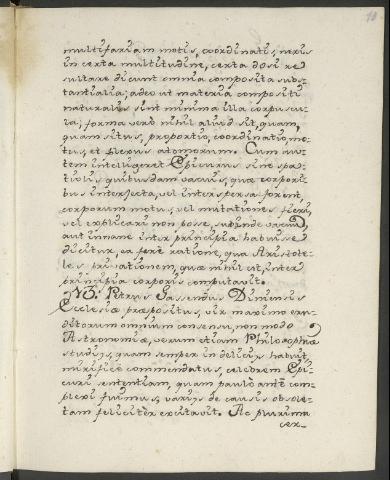 multifariam motis, coordinatis, nexis
in certa multitudine, certa dosi re
sultare dicunt omnia composita subs-
tantialia; adeo ut materia compositi
naturalis sint minima illa corpuscu-
la; forma verò nihil aliud sit, quam,
quam situs, proportio, coordinatio, mo-
tus, et flexus atomorum. Cum au-
tem intelligeret Epicurus sine spa-
tiolis quibusdam vacuis, quæ corpori-
bus interjecta, vel interspersa forent,
corporum motu, vel mutationes fieri,
vel explicari non posse, subinde vacuũ,
aut inane inter principia habuisse
dicitur, ea ferè ratione, qua Aristote-
les privationem, quæ nihil est, inter
principia corporis computavit.
13. Petrus Gassendus Diniensis
Ecclesiæ præpositus, vir maximo eru-
ditorum omnium consensu, non modo
Astronomiæ, verum etiam Philosophiæ
studijs, quam semper in delicijs habuit
mirificè commendatus, celebrem Epi-
curi sententiam, quam paulò antè com-
plexi fuimus, varijs de causis obsole-
tam feliciter excitavit. Ac plurima